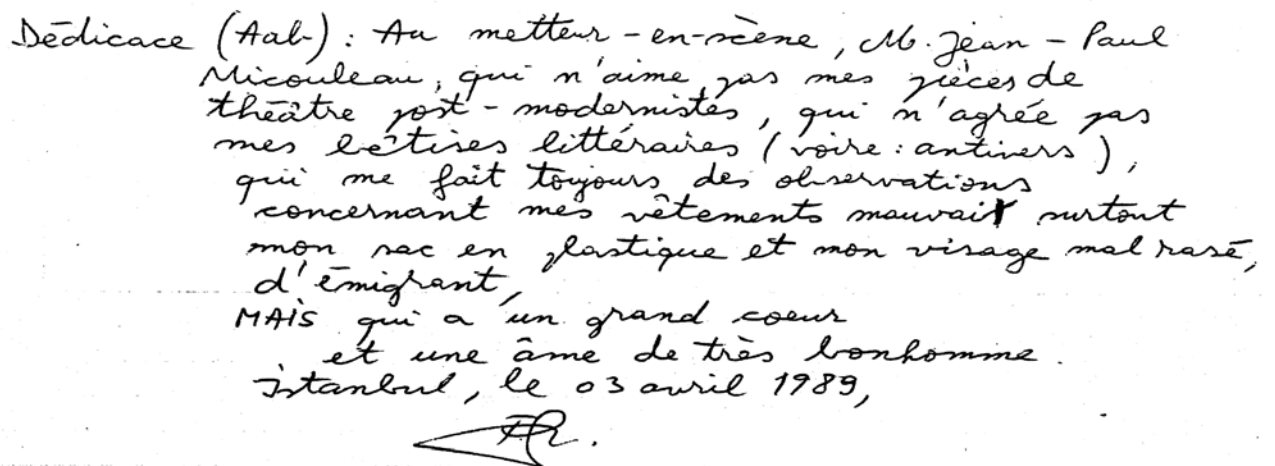 Dédicace (Aab) : Au metteur-en-scène, M. Jean-Paul
Micouleau, qui n'aime pas mes pièces de
théâtre post-modernistes, qui n'agrée pas
mes bêtises littéraires (voire : antivers),
qui me fait toujours des observations
concernant mes vêtements mauvais surtout
mon sac en plastique et mon visage mal rasé,
d'émigrant,
MAIS qui a un grand coeur
et une âme de très bonhomme.
Istanbul, le 03 avril 1989,